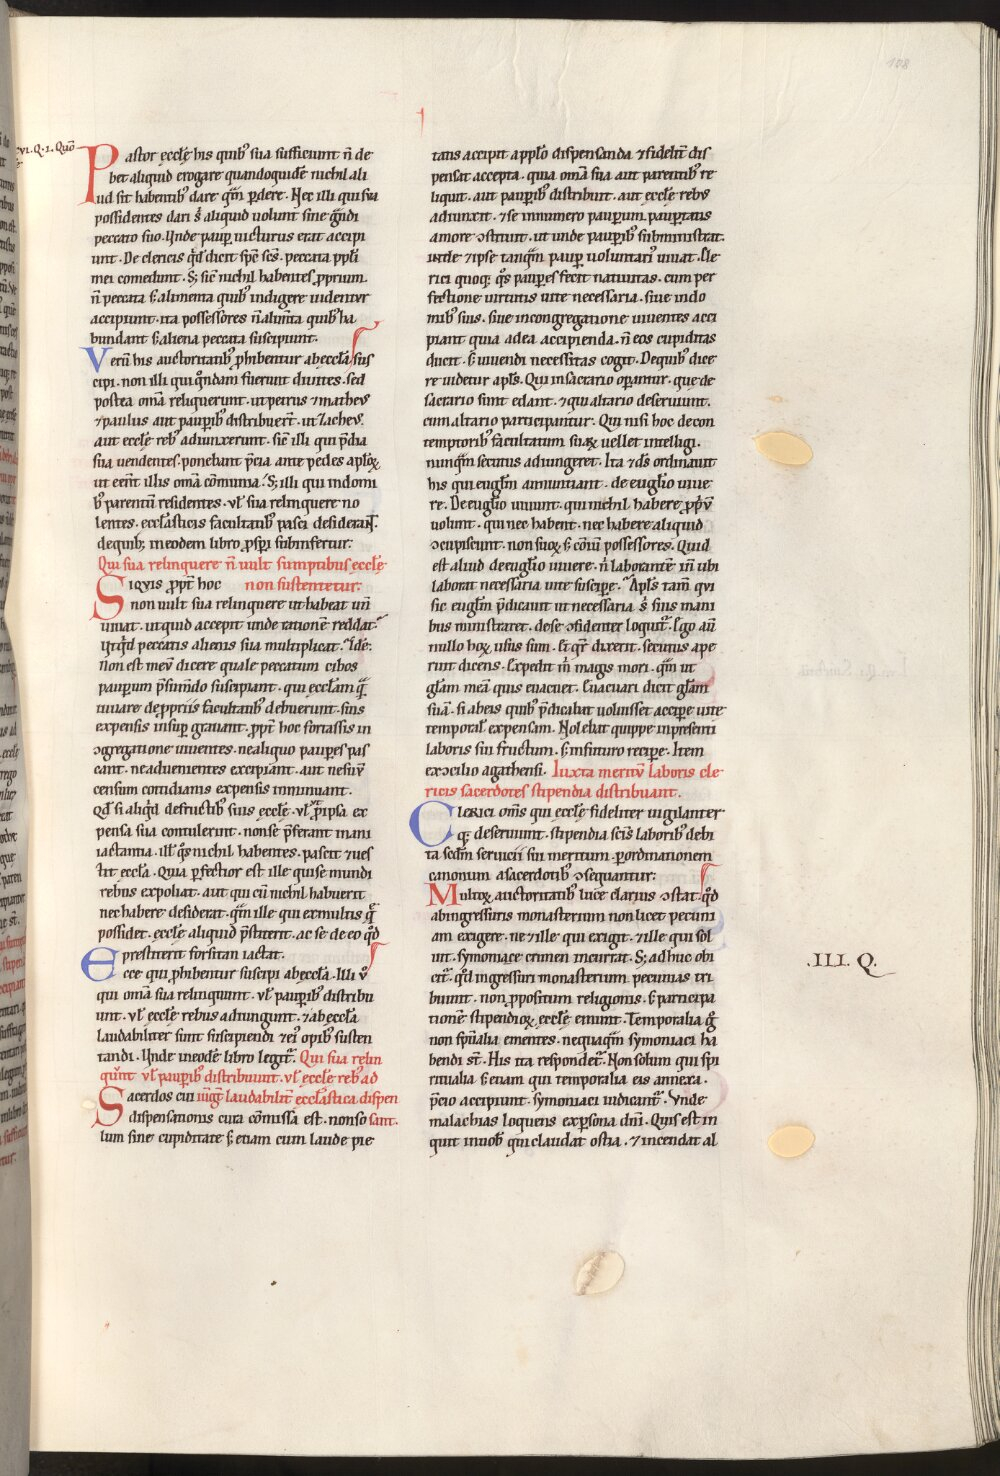 108
XVI.Q.I. Quō
Pastor eccłe his quib; sua sufficiunt n̄ de
bet aliquid erogare quandoquidē nichil ali
ud sit habentib; dare qͣm ꝑdere. Nec illi qui sua
possidentes dari s' aliquid uolunt sine gͣndi
peccato suo. Unde pauꝑ uicturus erat accipi
unt. De clericis qͥdē dicit spē scs̄. peccata ppli
mei comedunt. S; sic nichil habentes ꝓprium.
n̄ peccata s; alimenta quib; indigere uidentur
accipiunt. ita possessores n̄ alimta quib; ha
bundant s; aliena peccata suscipiunt.
Verū his auctoritatib; ꝓhibentur ab eccła sus
cipi. non illi qui qͦndam fuerunt diuites. sed
postea om̄a reliquerunt. ut petrus & matheus
& paulus aut pauꝑib; distribuer̄t. ut zacheus.
aut eccłe reb; adiunxerunt. sic illi qui p̄dia
sua uendentes. ponebant p̄cia ante pedes apłoꝝ
ut eēnt illis om̄a cōmunia. S; illi qui in domi
b; parentū residentes. uł sua relinquere no
lentes. eccłasticis facultatib; pasci desiderāt.
de quib; in eodem libro ꝓsꝑi subinfertur.
Qui sua relinquere n̄ uult sumptibus eccłe
Siquis ꝓpt̄ hoc non sustentetur.
non uult sua relinquere ut habeat un̄
uiuat. ut quid accepit unde rationē reddat.
Ut qͥd peccatis alienis sua multiplicat. Idē:
Non est meū dicere quale peccatum cibos
pauꝑum p̄sumdo suscipiant. qui eccłam qͣ
iuuare de ꝓpriis facultatib; debuerunt. suis
expensis insuꝑ grauant. ꝓpt̄ hoc fortassis in
ↄgregatione uiuentes. ne aliquo pauꝑes pas
cant. ne aduenientes excipiant. aut ne suū
censum cottidianis expensis inminuant.
Qd̄ si aliqͥd de fructib; suis eccłe. uł qͣ ip̄sa ex
pensa sua contulerint. non se p̄ferant inani
iactantia. ill' qͦs nichil habentes. pascit & ues
tit eccła. Quia ꝑfectior est ille qui se mundi
rebus expoliat. aut qui cū nichil habuerit
nec habere desiderat. qͣm ille qui ex multis qͣ
possidet. eccłe aliquid p̄stiterit. ac se de eo qͦd
prestiterit forsitan iactat.
Ecce qui ꝓhibentur suscipi ab eccła. Illi ū
qui om̄a sua relinquunt. uł pauꝑib; distribu
unt. uł eccłe rebus adiungunt. & ab eccła
laudabiliter sunt suscipiendi & ei' opib; susten
tandi. Unde in eodē libro legit̄. Qui sua relin
quūt uł pauꝑib; distribuunt. uł eccłe reb; ad
Sacerdos cui iūgt laudabilit̄ eccłastica dispen
dispensationis cura cōmissa est. non so sant.
lum sine cupiditate s; etiam cum laude pie
tatis accipit a ppło dispensanda & fidelit̄ dis
pensat accepta. quia om̄a sua aut parentib; re
liquit. aut pauꝑib; distribuit. aut eccłe reb;
adiunxit. & se in numero pauꝑum pauꝑtatis
amore ↄstituit. ut unde pauꝑib; subministrat.
inde & ipse tanqͣm pauꝑ uoluntari' uiuat. Cle
rici quoq; qͦs pauꝑes fecit natiuitas. cum per
fectione uirtutis uite necessaria. siue in do
mib; suis. siue in congregatione uiuentes acci
piant quia ad ea accipienda. n̄ eos cupiditas
ducit. s; uiuendi necessitas cogit. De quib; dice
re uidetur apłs. Qui in sacrario oꝑantur. que de
sacrario sunt edant. & qui altario deseruiunt.
cum altario participantur. Qui nisi hoc de con
temptorib; facultatum suaꝝ uellet intelligi.
nunqͣm secutus adiungeret. Ita & ds̄ ordinauit
his qui eugłm annuntiant. de euglio uiue
re. De euglio uiuunt. qui nichil habere ꝓpriū
uolunt. qui nec habent. nec habere aliquid
ↄcupiscunt. non suoꝝ s; cōmū possessores. Quid
est aliud de euglio uiuere. n̄ laborantē in ubi
laborat necessaria uite suscipe. Apłs tam̄ qui
sic eugłm p̄dicauit ut necessaria s' suis mani
bus ministraret. de se ↄfidenter loquit̄. Ego aū
nullo hoꝝ usus sum. Et qͬ dixerit. secutus ape
ruit dicens. Expedit m̄ magis mori. qͣm ut
głam meā quis euacuet. Euacuari dicit głam
suā. si ab eis quib; p̄dicabat uoluisset accipe uite
temporal' expensam. Nolebat quippe in presenti
laboris sui fructum. s; in futuro recipe. Item
ex ↄcilio agathensi. Iuxta meritū laboris cle
ricis sacerdotes stipendia distribuant.
Clerici om̄s qui eccłe fideliter uigilanter
q; deseruiunt. stipendia scīs laborib; debi
ta sedm̄ seruicii sui meritum. ꝑ ordinationem
canonum a sacerdotib; ↄsequantur:
Multoꝝ auctoritatib; luce clarius ↄstat. qͦd
ab ingressuris monasterium non licet pecuni
am exigere. ne & ille qui exigit. & ille qui sol
uit. symoniace crimen incurrat. S; adhuc obi
cit̄. qͦd ingressuri monasterium pecunias tri
buunt. non ꝓpositum religionis. s; participa
tionē stipendioꝝ eccłe emunt. Temporalia gͦ
non spūalia ementes. nequaqͣm symoniaci ha
bendi st̄. His ita respondet̄. Non solum qui spi
ritualia s; etiam qui temporalia eis annexa.
p̄cio accipiunt. symoniaci iudicant̄. Unde
malachias loquens ex ꝑsona dn̄i. Quis est in
quit in uob; qui claudat ostia. & incendat al
.III.Q.